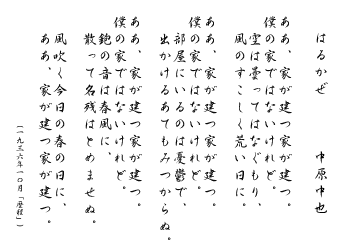 はるかぜ　　中原中也
あゝ、家が建つ家が建つ。
僕の家ではないけれど。
空は曇つてはなぐもり、
風のすこしく荒い日に。
あゝ、家が建つ家が建つ。
僕の家ではないけれど。
部屋にいるのは憂鬱で、
出かけるあてもみつからぬ。
あゝ、家が建つ家が建つ。
僕の家ではないけれど。
鉋の音は春風に、
散って名残はとめませぬ。
風吹く今日の春の日に、
あゝ、家が建つ家が建つ。
（一九三六年一〇月「歴程」）